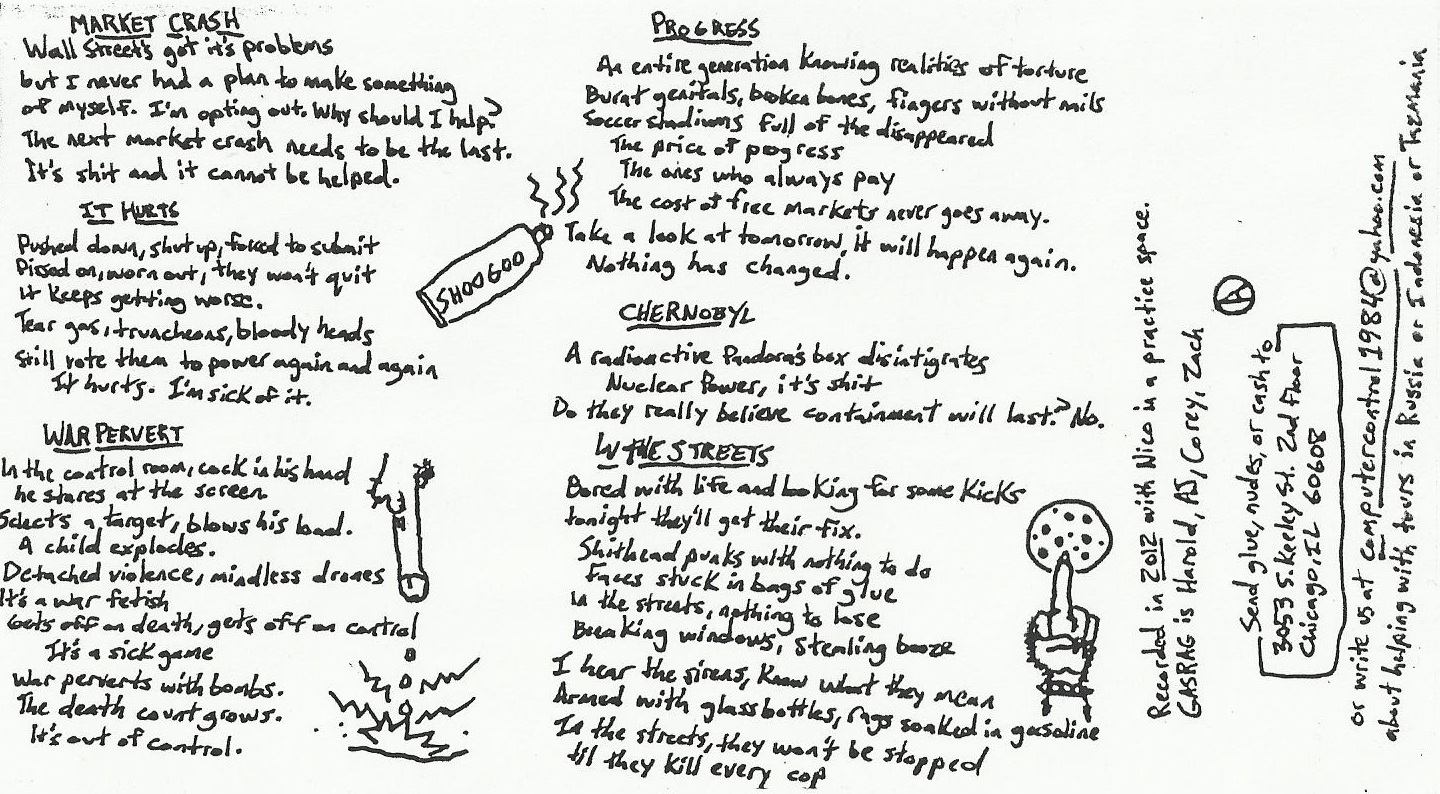 MARKET CRASH
Wall Street's got it's problems
but I never had a plan to make something
of myself. I'm opting out. Why should I help?
The next market crash needs to be the last.
It's shit and it cannot be helped.
IT HURTS
Pushed down, shut up, forced to submit
Pissed on, worn out, they won't quit
it keeps getting worse.
Tear gas, truncheons, bloody heads
Still vote them to power again and again
It hurts. I'm sick of it.
WAR PERVERT
In the control room, cock in his hand
he stares at the screen
Selects a target, blows his load.
A child explodes.
Detached violence, mindless drones
It's a war fetish
Gets off on death, gets off on control
It's a sick game
War perverts with bombs.
The death count grows.
It's out of control.
SHOO GOO
PROGRESS
An entire generation knowing realities of torture
Burnt genitals, broken bones, fingers without nails
Soccer stadiums full of the disappeared
The price of progress
The ones who always pay
The cost of free markets never goes away.
Take a look at tomorrow, it will happen again.
Nothing has changed.
CHERNOBYL
A radioactive Pandora's box disintigrates
Nuclear Power, it's shit
Do they really believe containment will last? No.
IN THE STREETS
Bored with life and looking for some kicks
tonight they'll get their fix.
Shithead punks with nothing to do
Faces stuck in bags of glue
in the streets, nothing to lose
Breaking windows, stealing booze
I hear the sirens, know what they mean
Armed with glass bottles, rags soaked in gasoline
In the streets, they won't be stopped
til they kill every cop
Recorded in 2012 with Nico in a practice space.
GASRAG is Harold, AJ, Corey, Zach
Send glue, nudes, or cash to
3053 S. Keeley St. 2nd Floor
Chicago, IL 60608
or write us at computercontrol1984@yahoo.com
about helping with tours in Russia or Indonesia or Tazmania